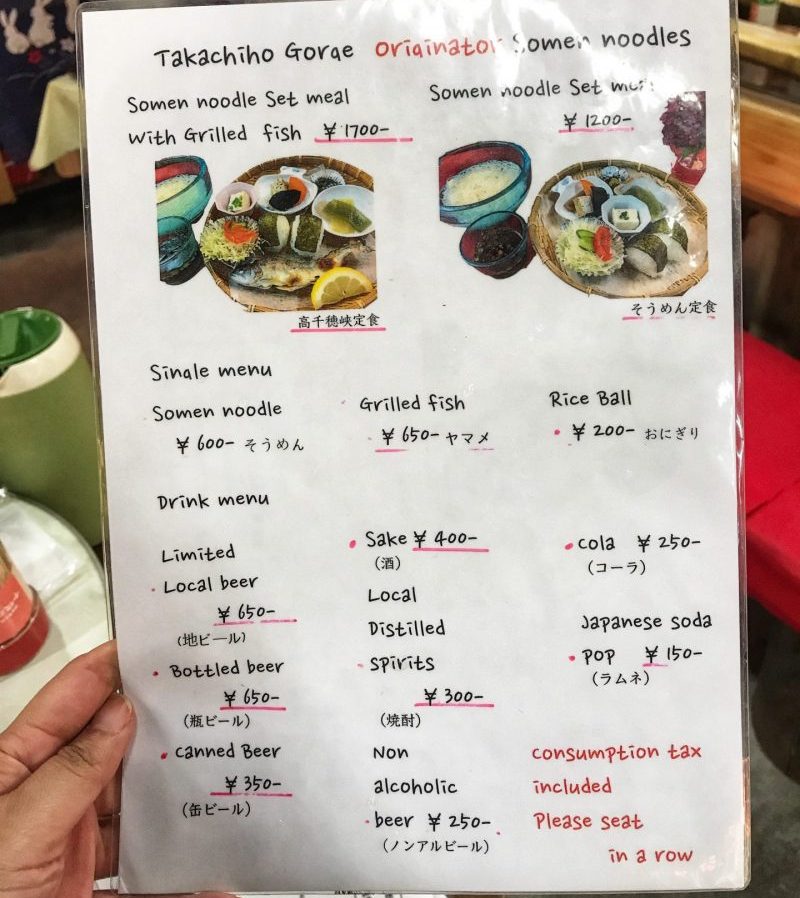 Takachiho Gorge Originator Somen noodles
Somen noodle Set meal
With Grilled fish ¥1700-
高千穂峡定食
Somen noodle Set meal
¥1200-
そうめん定食
Single menu
Somen noodle
¥600- そうめん
Grilled fish
¥650- ヤマメ
Rice Ball
¥200- おにぎり
Drink menu
Limited
Local beer
¥650-
(地ビール)
Bottled beer
¥650-
(瓶ビール)
Canned Beer
¥350-
(缶ビール)
Sake ¥400-
(酒)
Local
Distilled
spirits
¥300-
(焼酎)
Non
alcoholic
beer ¥250-
(ノンアルビール)
cola ¥250-
(コーラ)
Japanese soda
pop ¥150-
(ラムネ)
consumption tax
included
Please seat
in a row